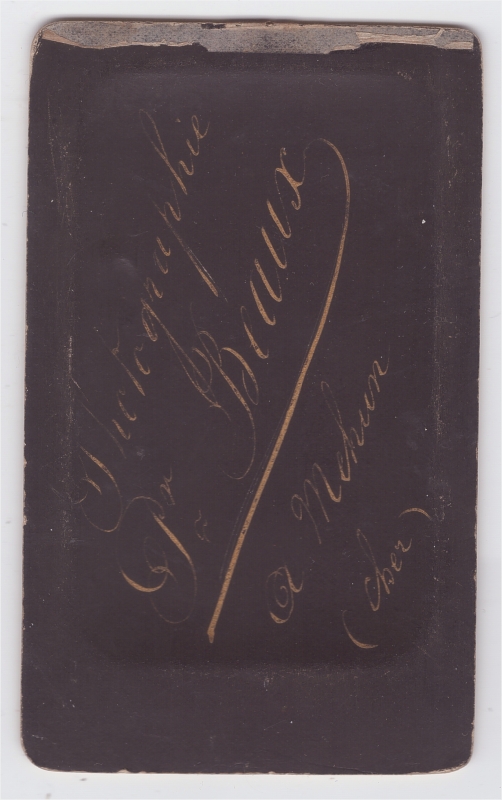 Photographie
Beaux
A Mehun
(cher)